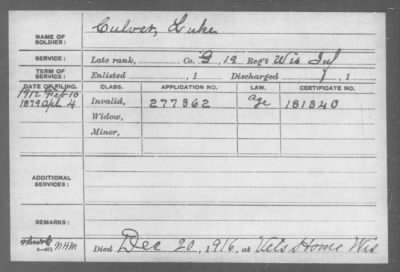 NAME OF SOLDIER: Culver, Luke
SERVICE: Late rank, Co. G, 19 Reg't Wis Inf
TERM OF SERVICE: Enlisted , 1 Discharged , 1
DATE OF FILING. CLASS. APPLICATION NO. LAW. CERTIFICATE NO.
1912 Feb 10
1879 Apl. 4 Invalid, 277362 Age 181340
Widow,
Minor,
ADDITIONAL SERVICES:
REMARKS:
MHM Died Dec 20, 1916, at Vets Home Wis